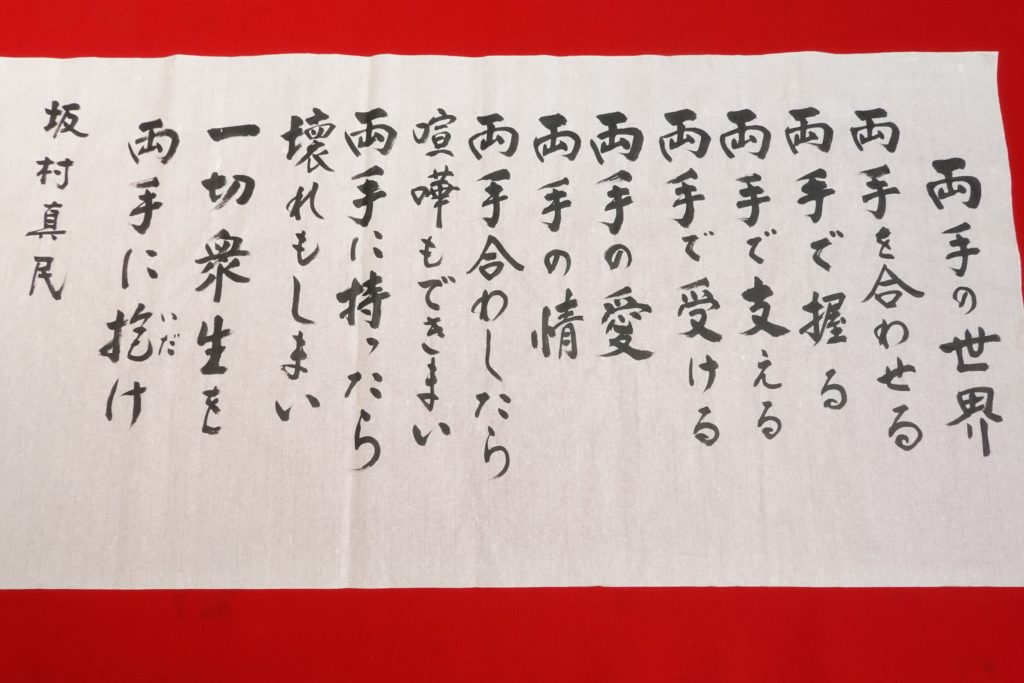 両手の世界
両手を合わせる
両手で握る
両手で支える
両手で受ける
両手の愛
両手の情
両手合わしたら
喧嘩もできまい
両手に持ったら
壊れもしまい
一切衆生を
両手に抱け
いだ
坂村真民